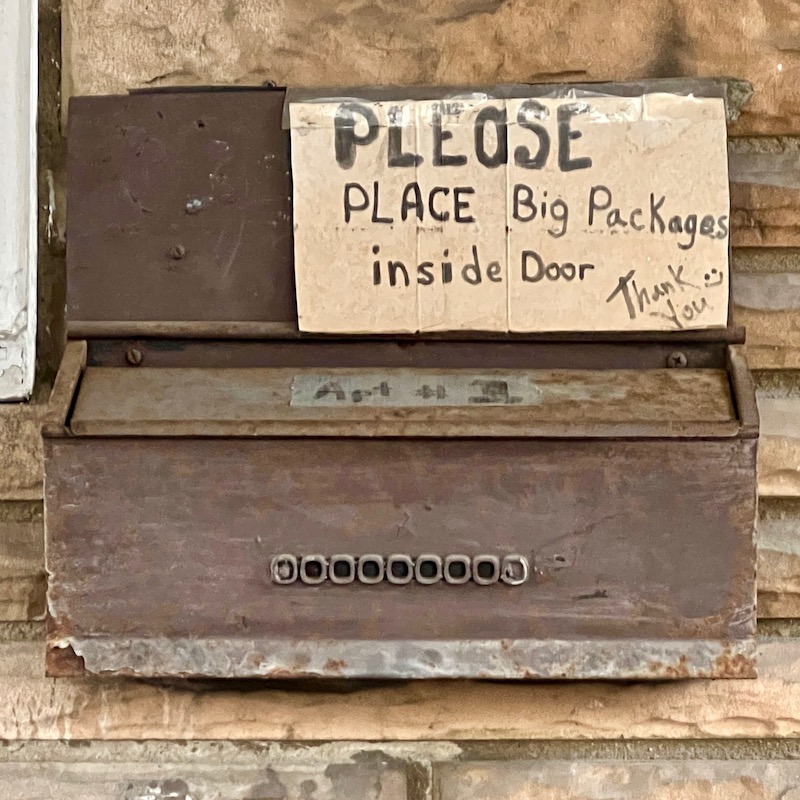 PLEASE
PLACE Big Packages
inside Door
Thank :)
You
Apt # II